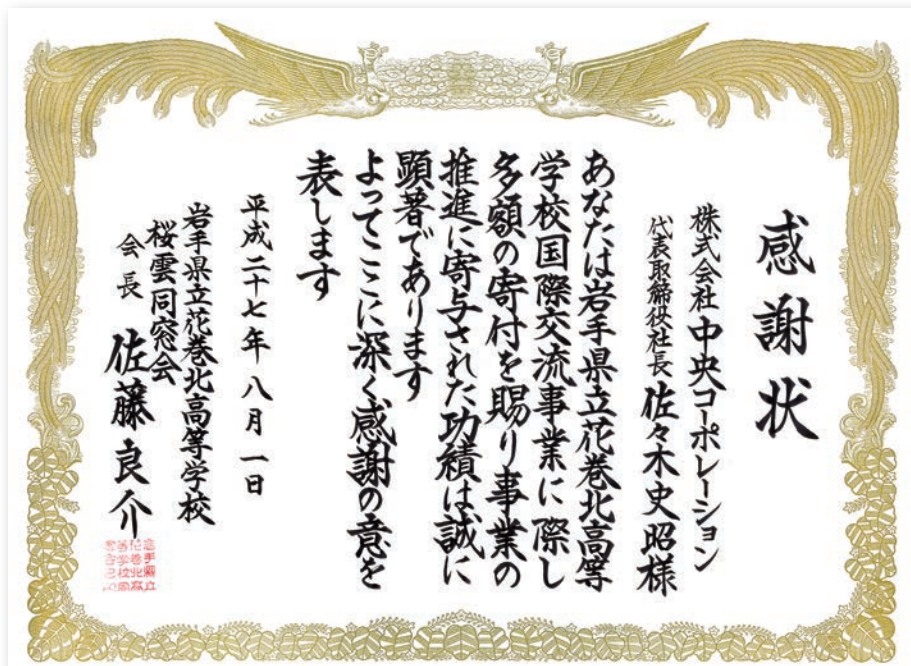 感謝状
株式会社 中央コーポレーション
代表取締役社長 佐々木史昭様
あなたは岩手県立花巻北高等
学校国際交流事業に際し
多額の寄付を賜り事業の
推進に寄与された功績は誠に
顕著であります
よってここに深く感謝の意を
表します
平成二十七年八月一日
岩手県立花巻北高等学校
桜雲同窓会
会長 佐藤良介